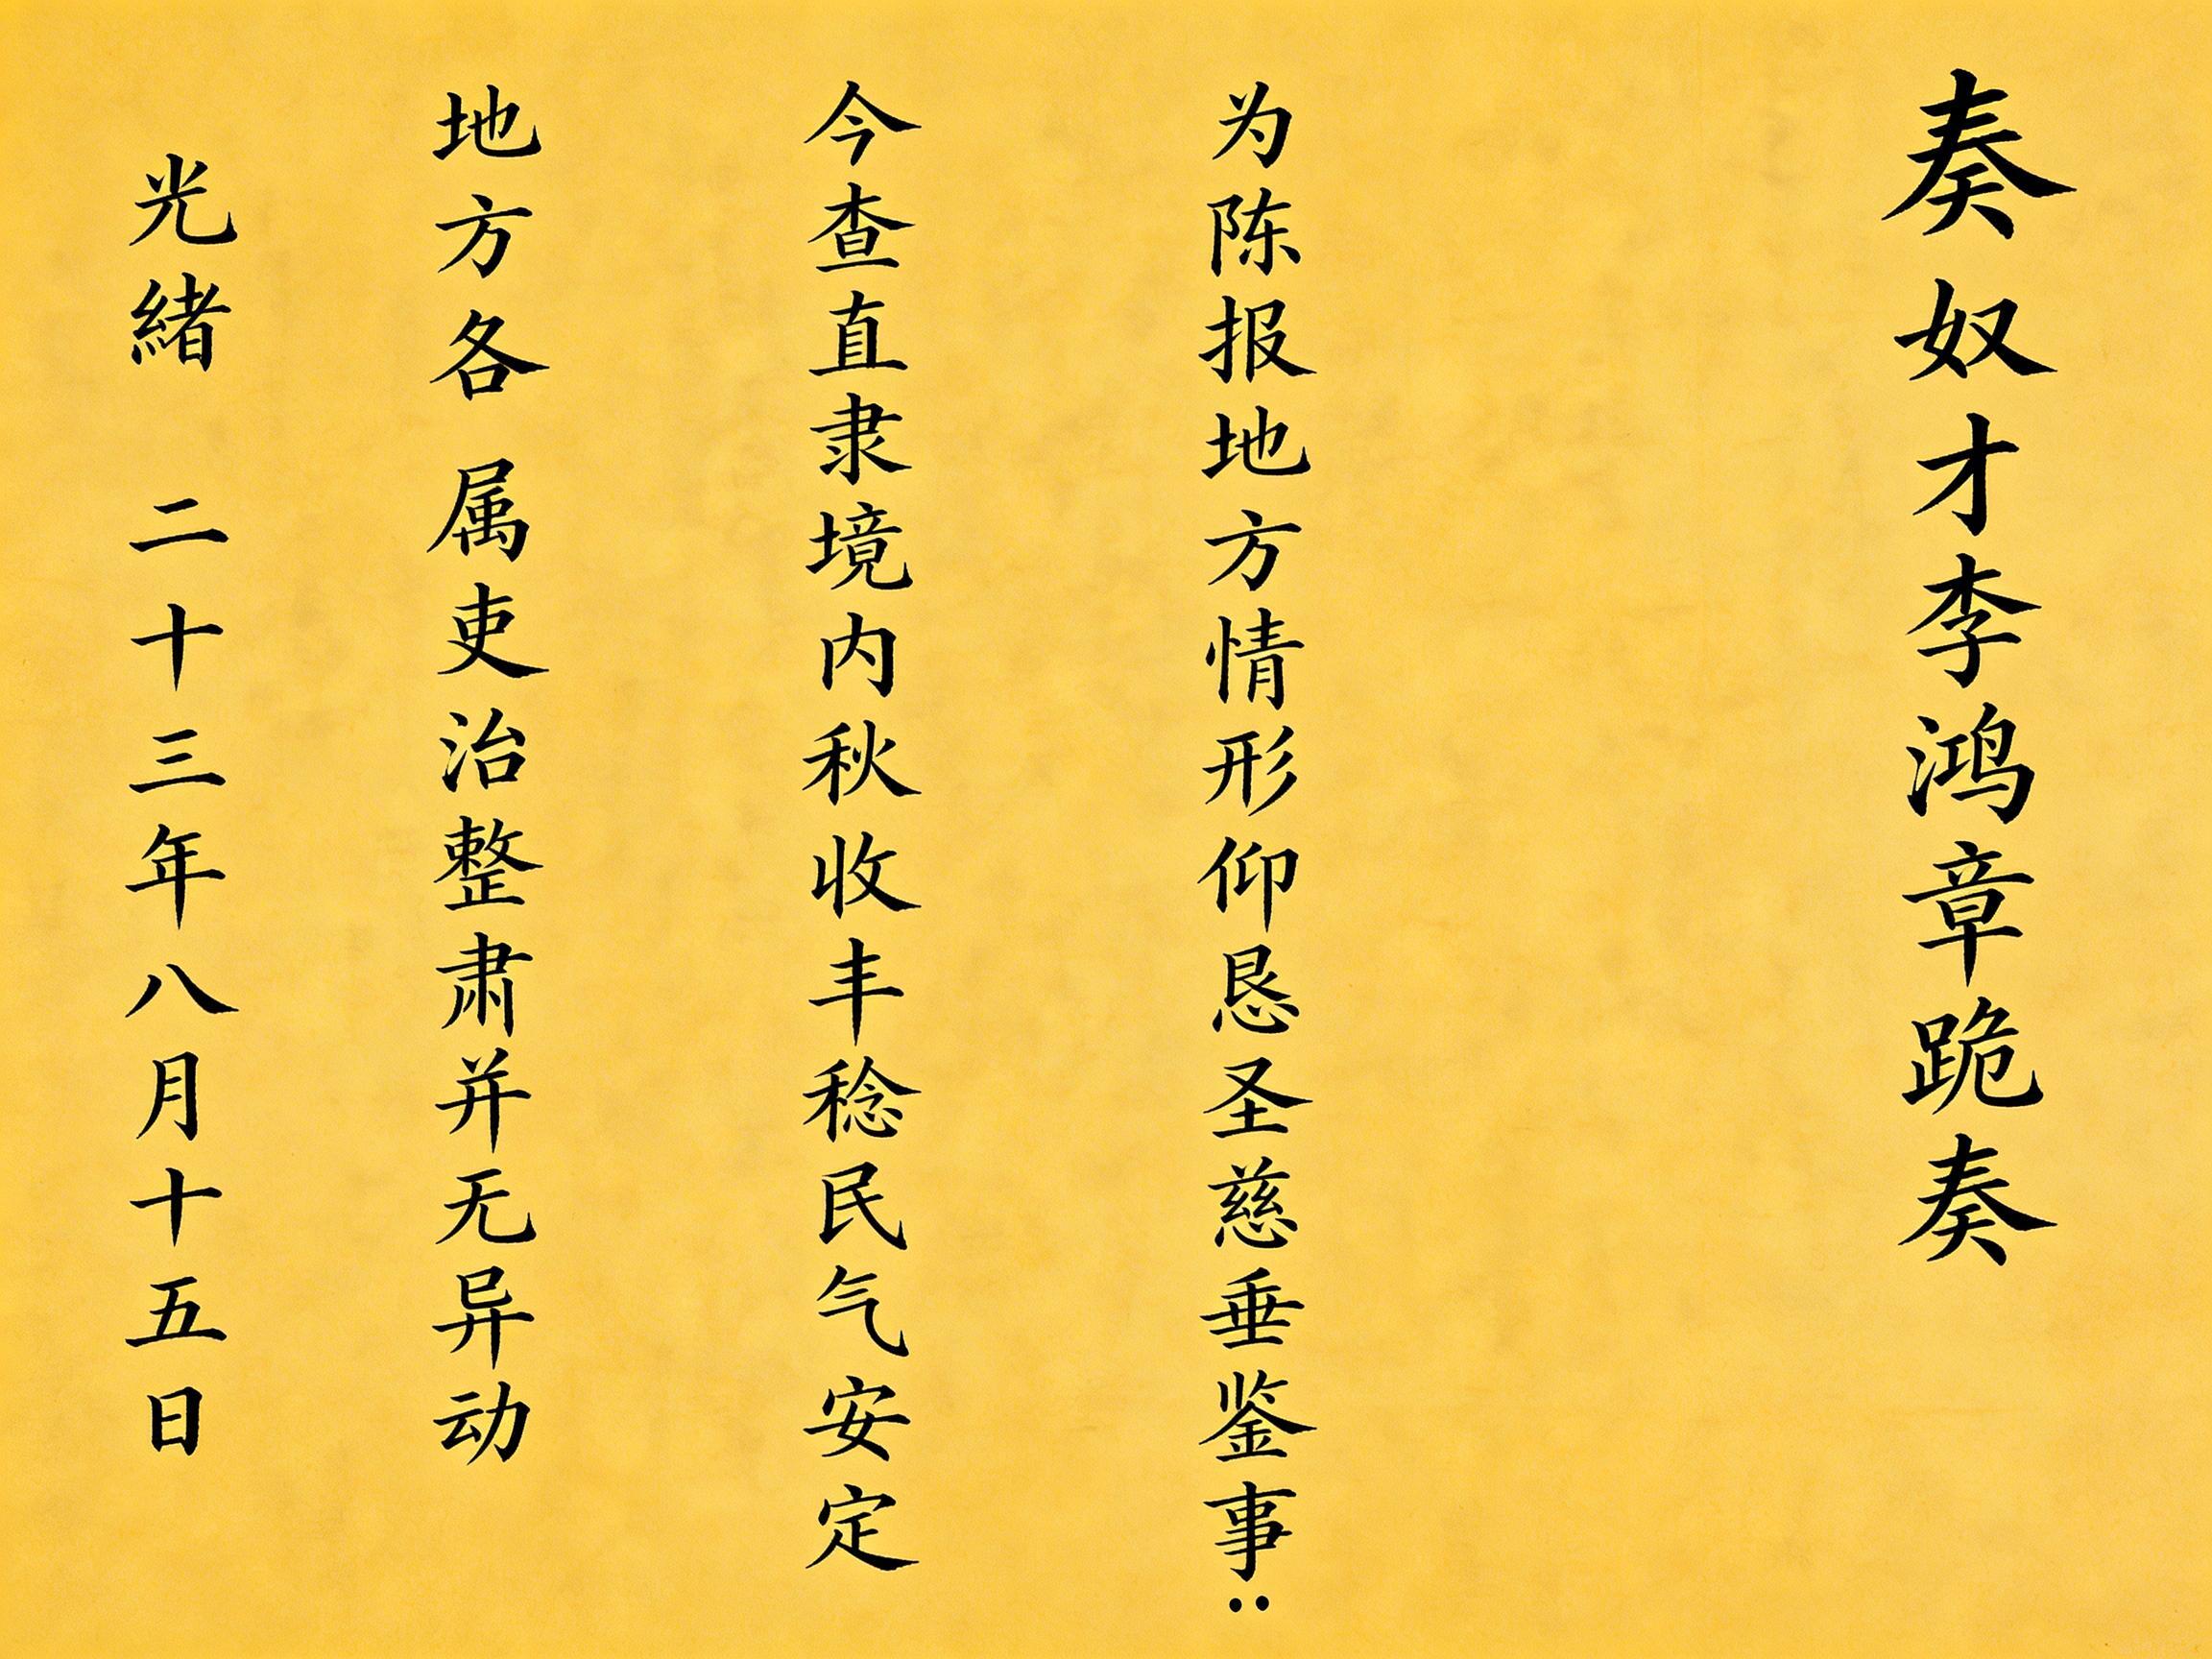 奏奴才李鸿章跪奏
为陈报地方情形仰恳圣慈垂鉴事：
今查直隶境内秋收丰稔民气安定
地方各属吏治整肃并无异动
光緒二十三年八月十五日